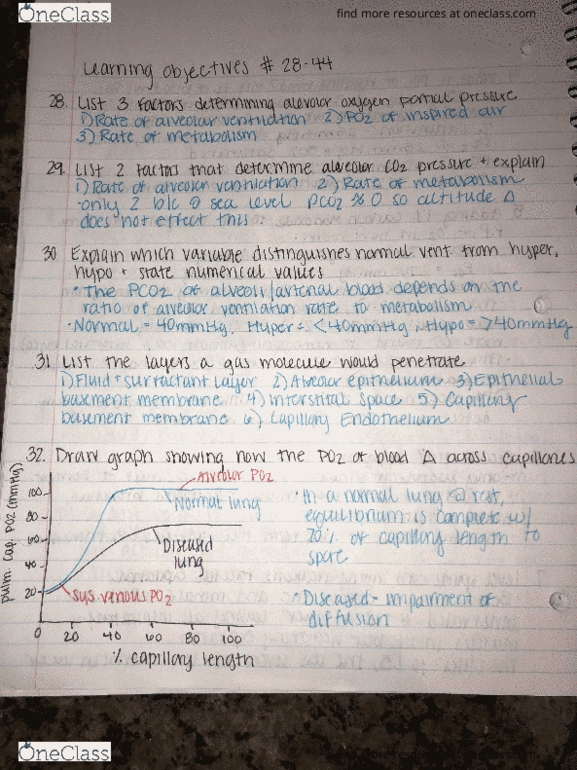 OneClass
find more resources at oneclass.com
Learning Objectives # 28-44
28. List 3 factors determining alevolar oxygen partial pressure
1) Rate of alveolar ventilation 2) PO2 of inspired air
3) Rate of metabolism
29. List 2 factors that determine alveolar CO2 pressure + explain
1) Rate of alveolar ventilation 2) Rate of metabolism
·only 2 b/c @ sea level PCO2 ≈ 0 so altitude Δ
does not effect this
30 Explain which variable distinguishes normal vent from hyper,
hypo + state numerical values
· The PCO2 of alveoli/arterial blood depends on the
ratio of alveolar ventilation rate to metabolism
·Normal = 40mmHg, Hyper = <40mmHg, Hypo = >40mmHg
31. List the layers a gas molecule would penetrate
1) Fluid + surfactant layer 2) Alveolar epithelium 3) Epithelial
basement membrane 4) Interstital space 5) Capillary
basement membrane 6) Capillary Endothelium
32. Draw graph showing how the PO2 of blood Δ across capillaries
pulm. cap. PO2 (mmHg)
Alveolar PO2
100
Normal lung
80
60
Diseased
lung
40
20
sys. venous PO2
0 20 40 60 80 100
% capillary length
· In a normal lung @ rest,
equilibrium is complete w/
70% of capillary length to
spare
· Diseased = impairment of
diffusion
OneClass